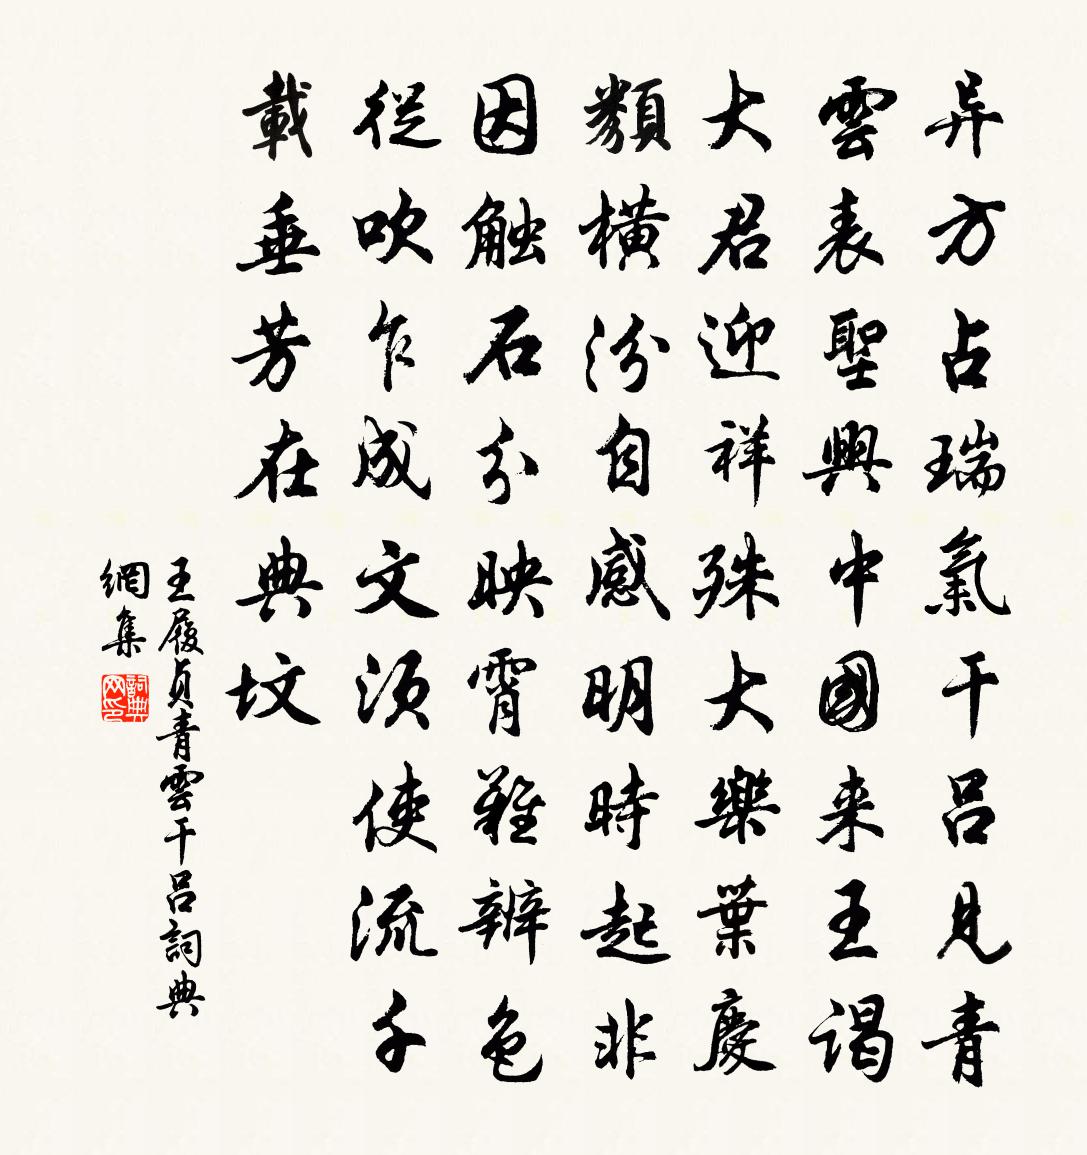 异方占瑞氣干呂見青
雲表聖興中國来王谒
大君迎祥殊大樂葉慶
類橫汾自感明時起非
因触石分映霄難辨色
從吹乍成文須使流千
載垂芳在典墳
王履貞青雲干呂詞典
網集
詞典网印